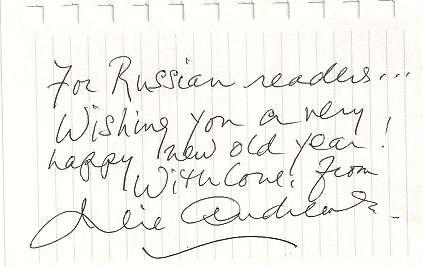 For Russian readers...
Wishing you a very
happy new old year!
With love, from
Julie Andrews